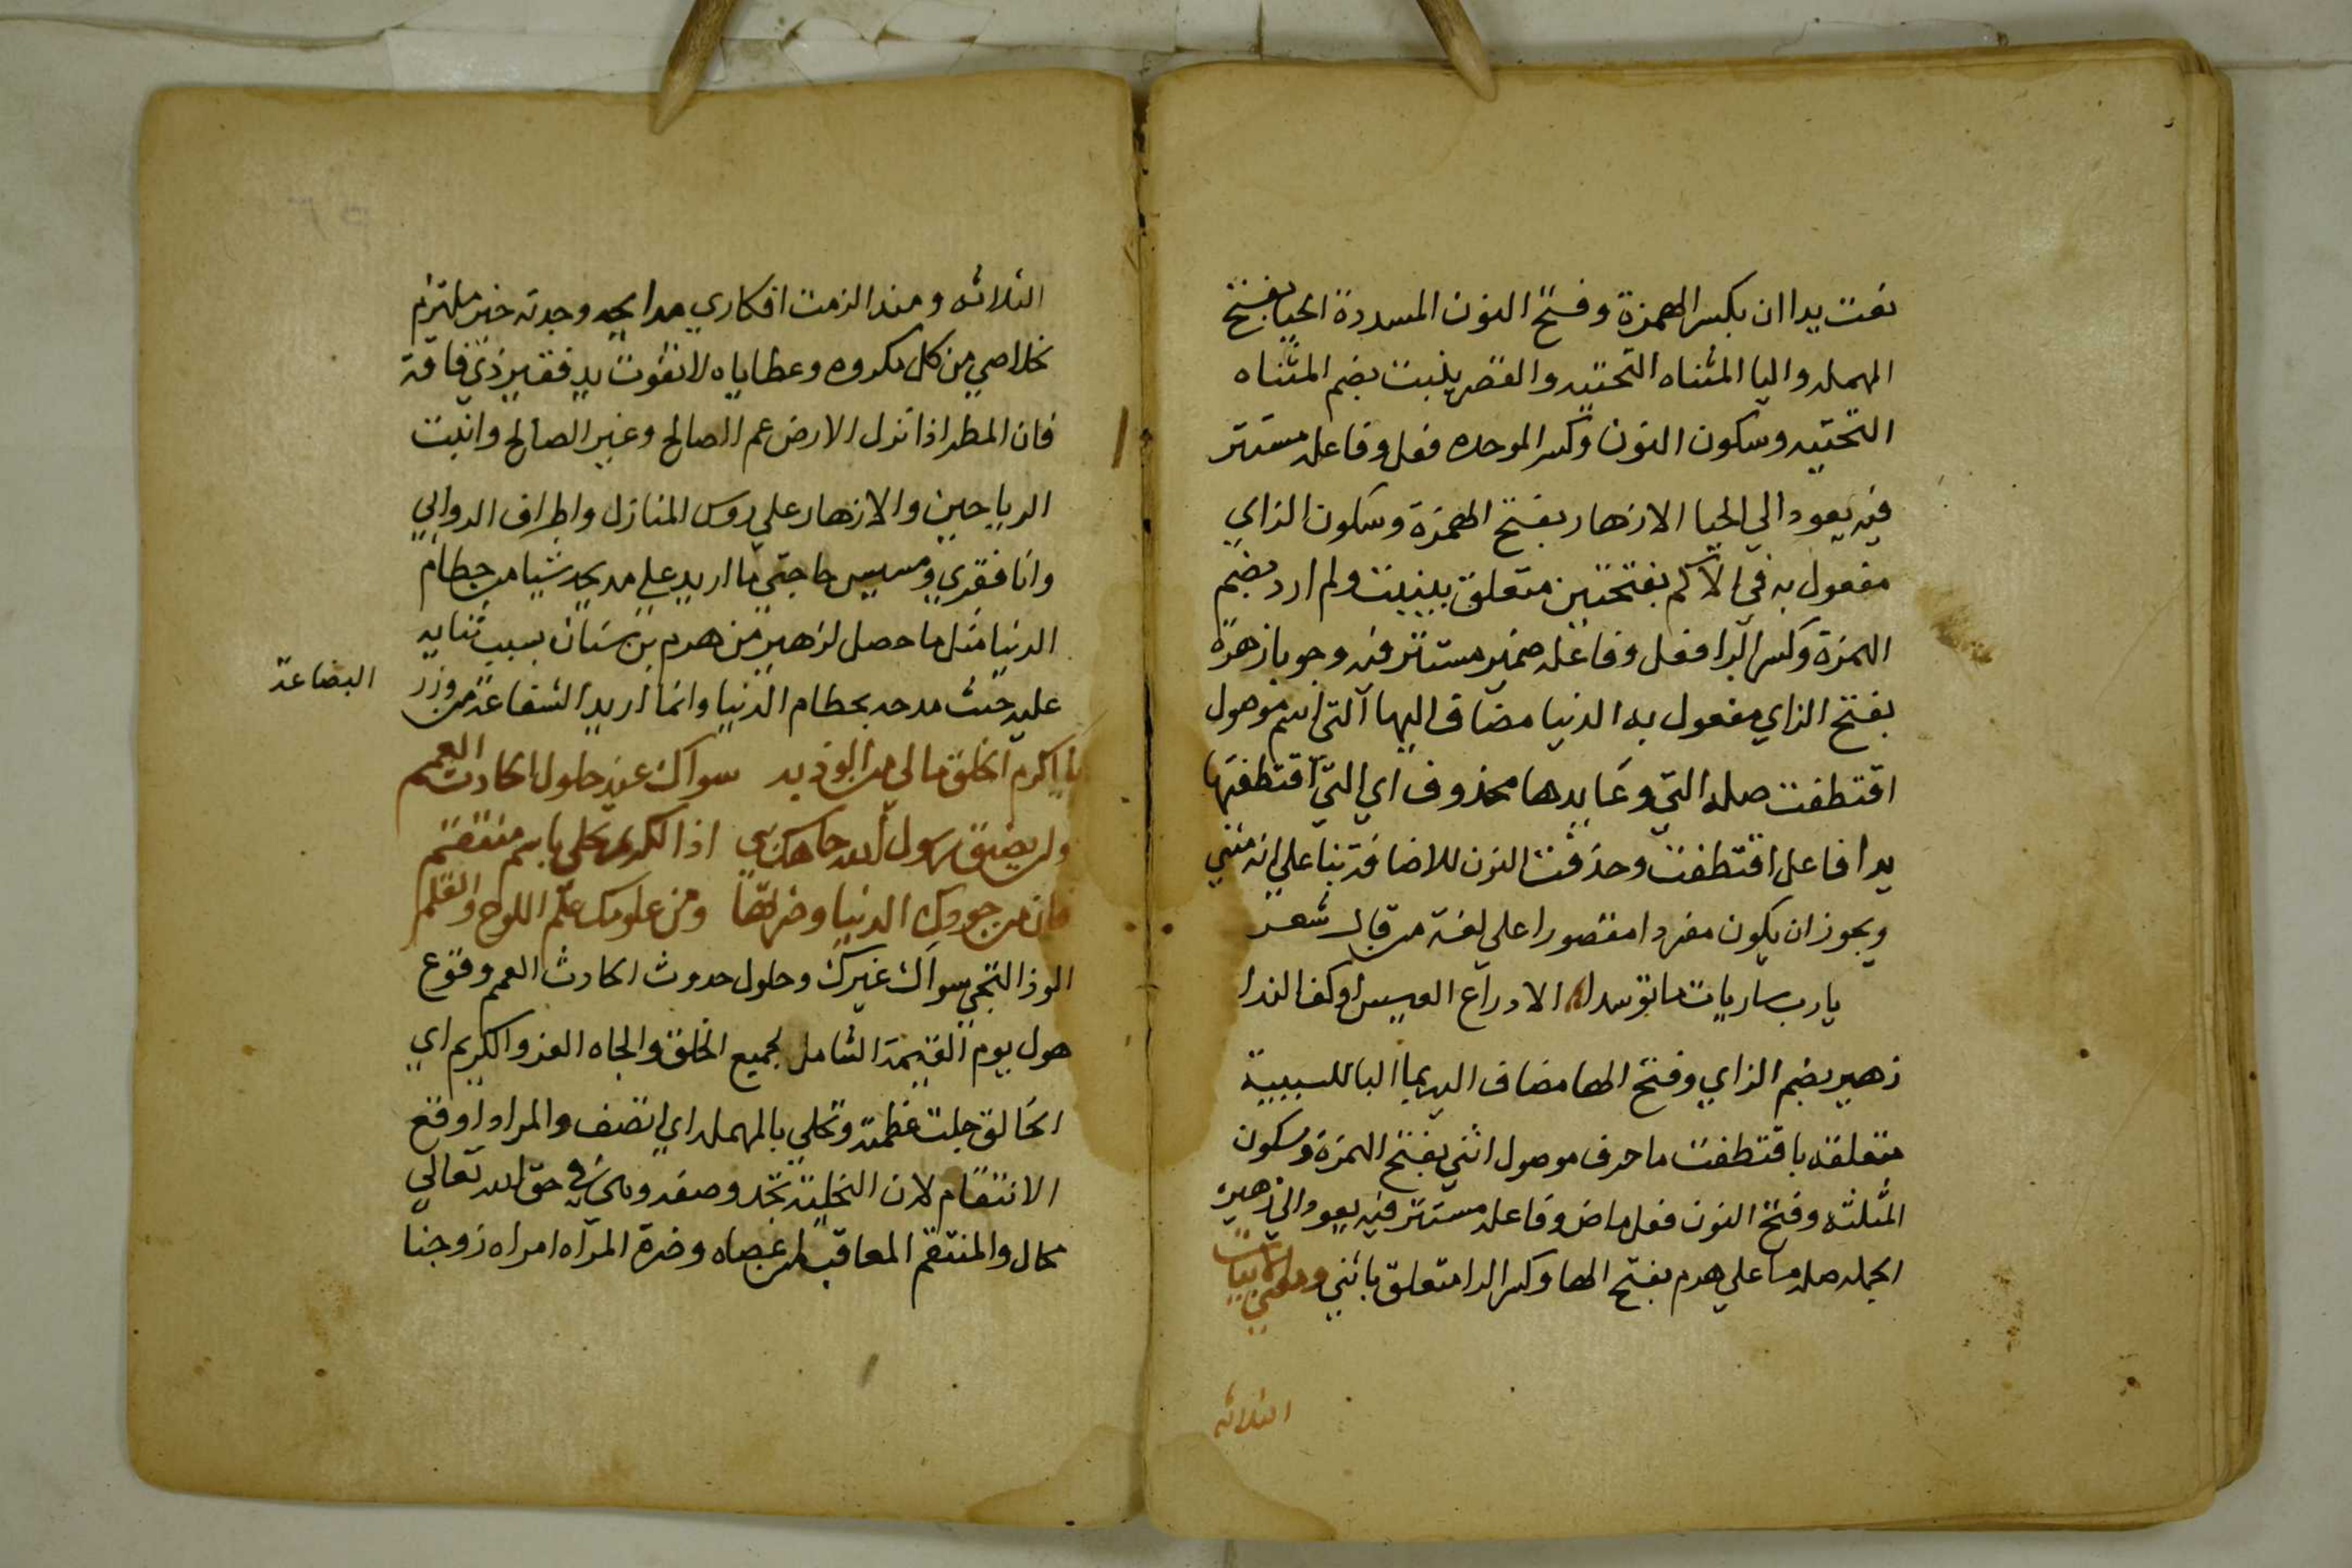 نعت يدا ان بكسر الهمزة وفتح النون المسددة الحيا بفتح
المهمله واليا المثناه التحتيه والقصر ينبت بضم المثناه
التحتيه وسكون النون وكسر الموحده فعل وفاعله مستتر
فيه يعود الي الحيا الازهار بفتح الهمزة وسكون الزاي
مفعول به في الاكم بفتحتين متعلق بينبت ولم ارد بضم
الهمزة وكسر الرا فعل وفاعله ضمير مستتر فيه وجوبا زهرة
بفتح الزاي مفعول به الدنيا مضاف اليها التي اسم موصول
اقتطفت صله التي وعايدها محذوف اي التي اقتطفتها
يدا فاعل اقتطفت وحذفت النون للاضافة بنا علي انه مثني
ويجوز ان يكون مفردا مقصورا علي لغة من قال شعر
يارب ساريات ما توسدا الا دراع العيس او كف اليدا
زهير بضم الزاي وفتح الها مضاف اليه بما البا للسببية
متعلقه باقتطفت ما حرف موصول اثني بفتح الهمزة وسكون
المثلثه وفتح النون فعل ماض وفاعله مستتر فيه يعود الي زهير
الجمله صله ما علي هرم بفتح الها وكسر الرا متعلق باثني ومعني الابيات
الثلاثه
الثلاثه ومنذ الزمت افكاري مدايحه وجدته خير ملتزم
لخلاصي من كل مكروه وعطاياه لا تفوت يد فقير ذي فاقة
فان المطر اذا نزل الارض عم الصالح وغير الصالح وانبت
الرياحين والازهار علي روس المنازل واطراف الدوالي
وانا فقري ومسيس حاجتي ما اريد علي مديحه شيا من حطام
الدنيا مثل ما حصل لزهير من هرم بن سنان بسبب ثنايه
عليه حيث مدحه بحطام الدنيا وانما اريد الشفاعة من وزر
البضاعة
يا اكرم الخلق مالي من الوذ به سواك عند حلول الحادث العمم
ولن يضيق رسول الله جاهك بي اذا الكريم تحلي باسم منتقم
فان من جودك الدنيا وضرتها ومن علومك علم اللوح والقلم
الوذ التجي سواك غيرك وحلول حدوث الحادث العمم وقوع
هول يوم القيمة الشامل لجميع الخلق والجاه العز والكريم اي
الخالق جلت عظمته وتحلي بالمهمله اي اتصف والمراد اوقع
الانتقام لان التحلية تجدد وصفه وهي في حق الله تعالي
محال والمنتقم المعاقب لمن عصاه وضرة المراه امراه زوجها